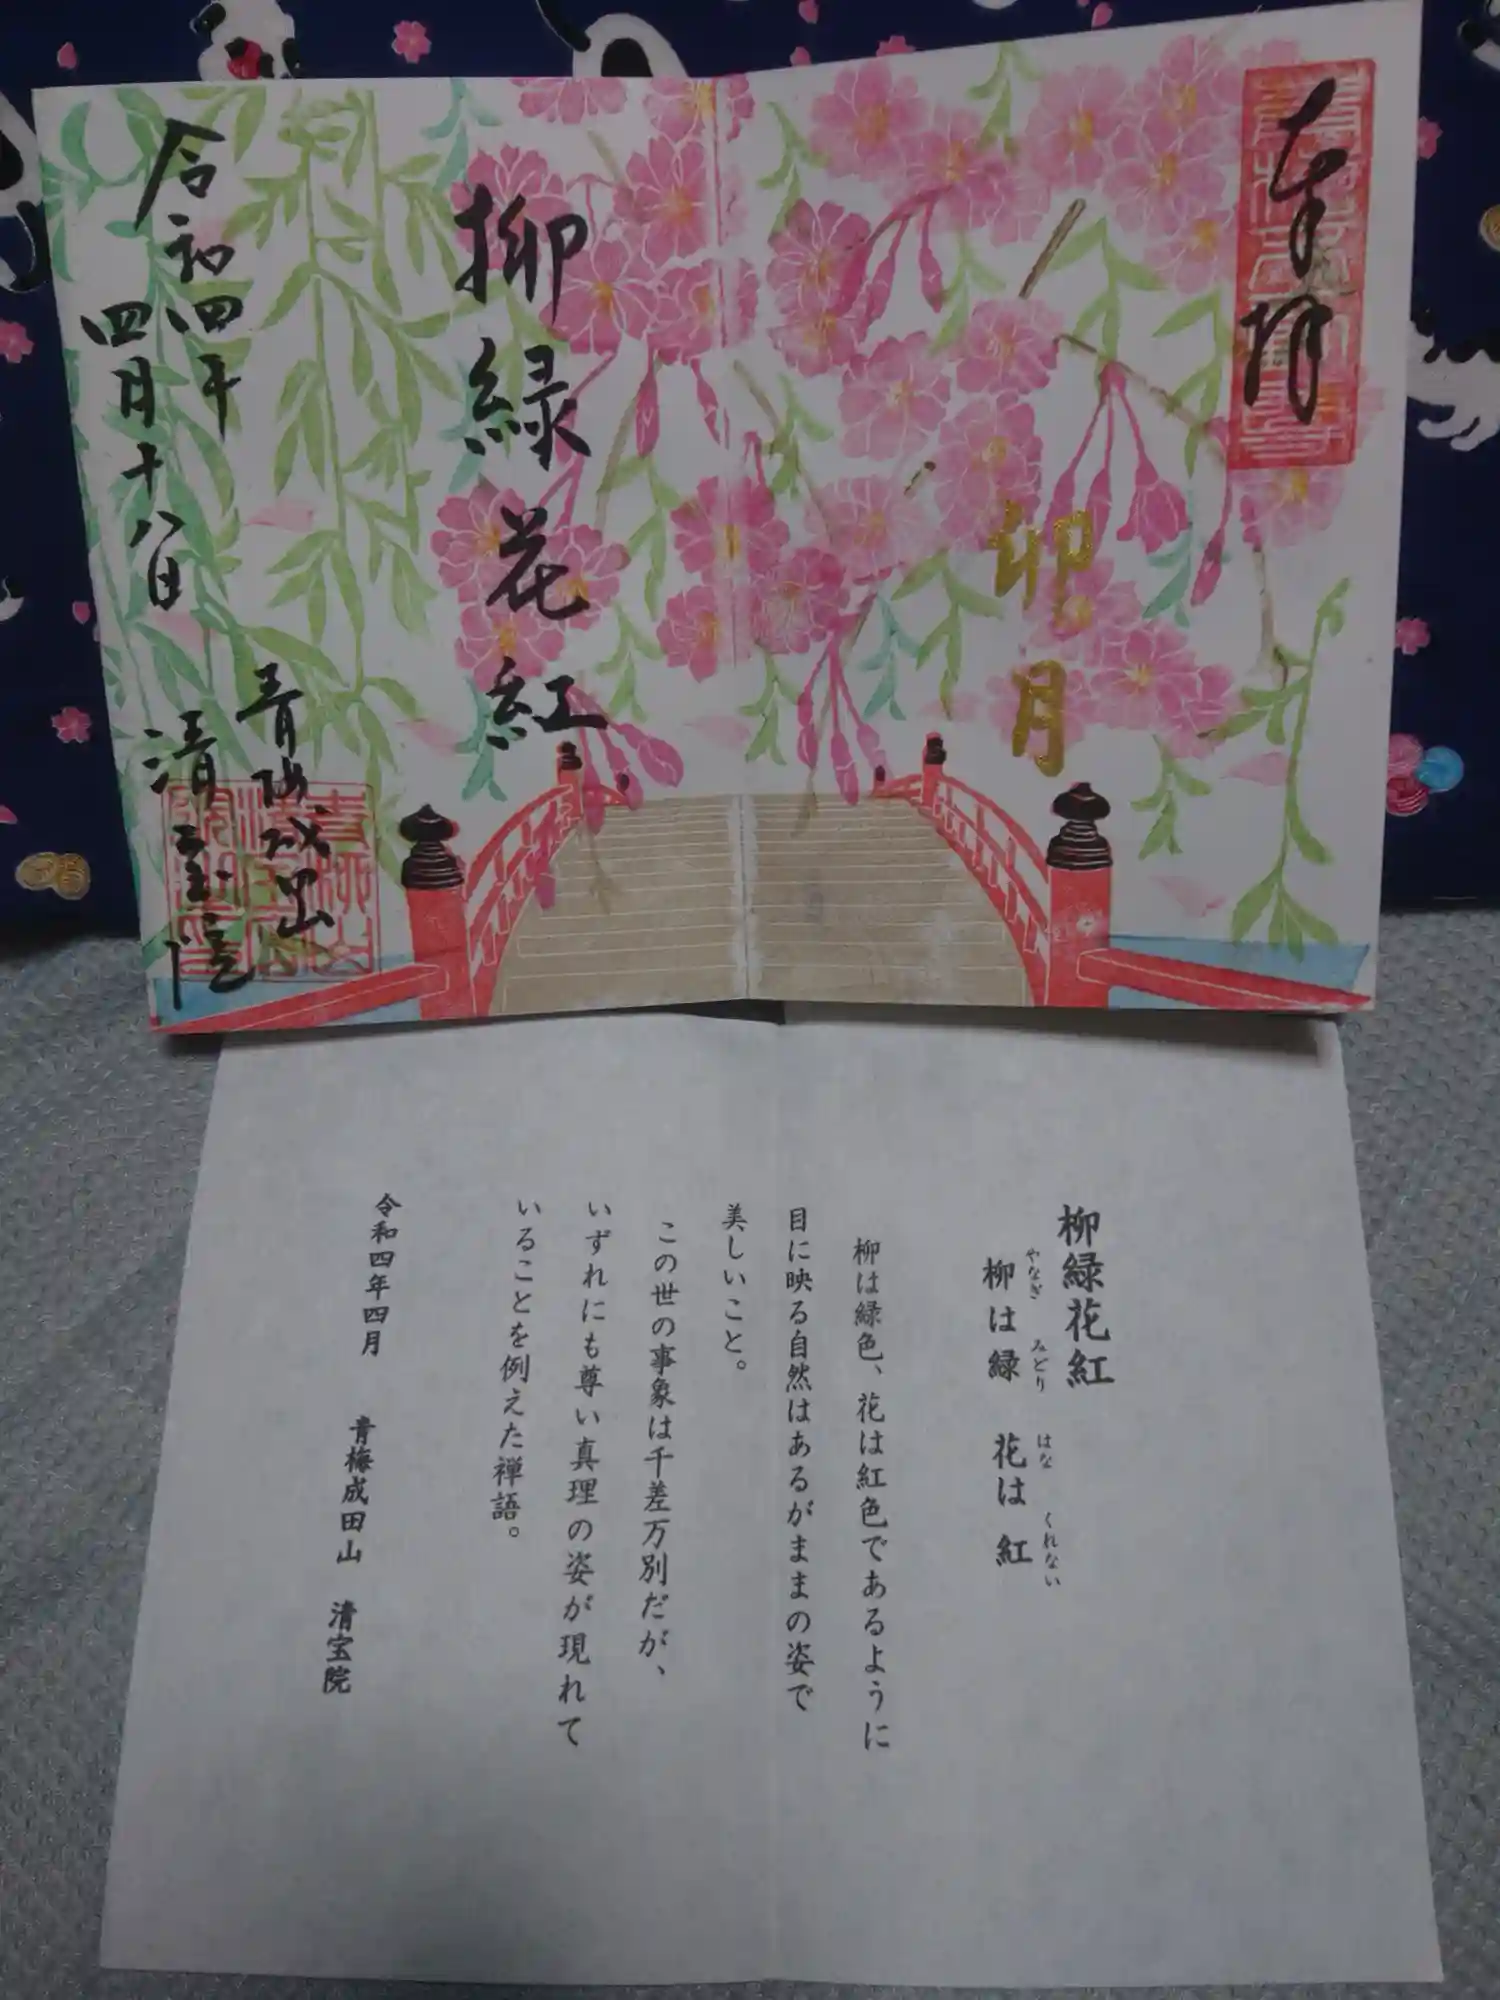 奉拝
卯月
柳緑花紅
令和四年
四月十八日
青梅成田山
清宝院
柳緑花紅
やなぎ みどり はな くれない
柳は緑 花は紅
柳は緑色、花は紅色であるように
目に映る自然はあるがままの姿で
美しいこと。
この世の事象は千差万別だが、
いずれにも尊い真理の姿が現れて
いることを例えた禅語。
令和四年四月 青梅成田山 清宝院